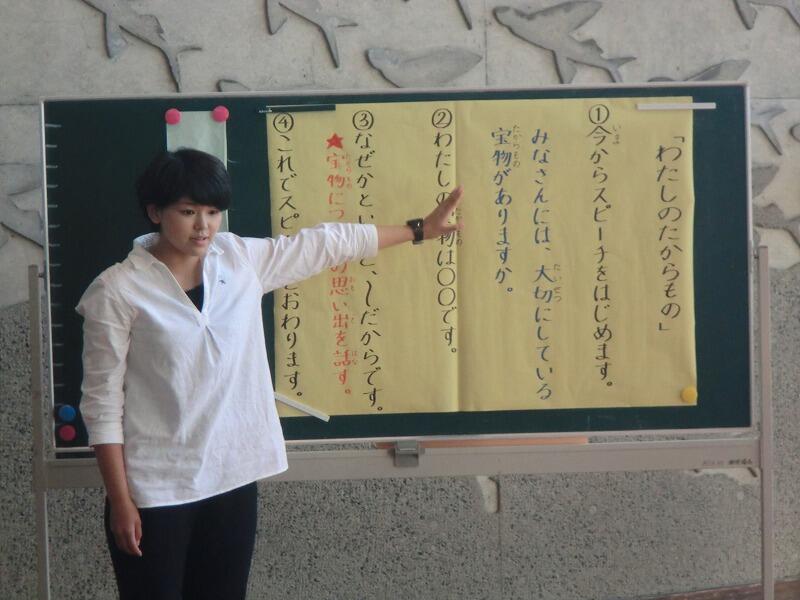 「わたしのたからもの」
①今からスピーチをはじめます。
みなさんには、大切にしている
宝物がありますか。
②わたしの 物は〇〇です。
③なぜかとい と、〜だからです。
★宝物につ の思い出を話す。
④これでスピ とおわります。